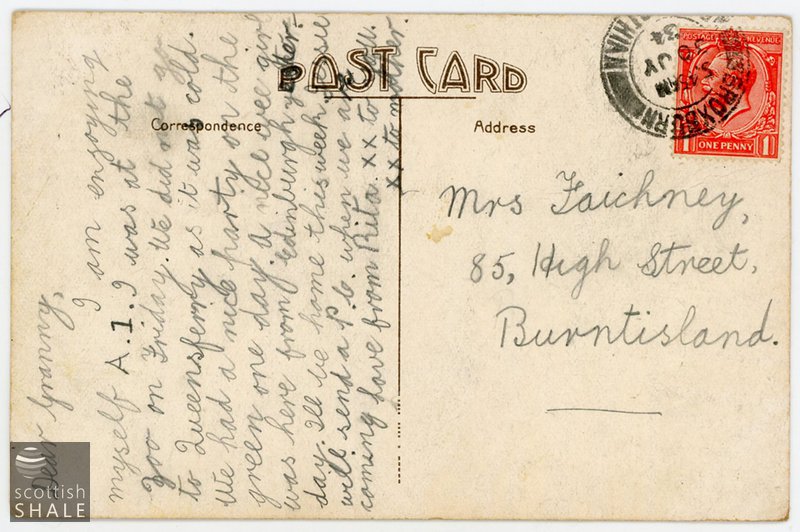 POST CARD
Correspondence
Address
Dear Granny,
I am enjoying
myself A.1. I was at the
Zoo on Friday. We did not go
to Queensferry as it was cold.
We had a nice party on the
green one day. a nice wee girl
was here from Edinburgh yester-
day. I'll be home this week, sue
will send a p.c. when we are
coming love from Rita. xx to you.
xx to mother.
Mrs Faichney,
85, High Street,
Burntisland.
POSTAGE REVENUE
ONE PENNY
1 1
BROXBURN
5.15AM
JY
34
scottish
SHALE